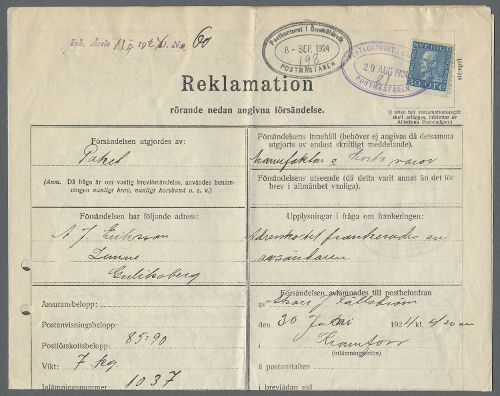 Ink. Åsele 11/9 1924 D. No 60
Postkontoret i Örnsköldsvik
8 - SEP. 1924
198
POSTMÄSTAREN
29 AUG 1924
POSTMÄSTAREN
SVERIGE
Reklamation
rörande nedan angivna försändelse.
Försändelsen utgjordes av:
Paket
(Anm. Då fråga är om vanlig brevförsändelse, användes benäm-
ningen vanligt brev, vanligt korsband o. s. v.)
Försändelsens innehåll (behöver ej angivas då detsamma
utgjorts av endast skriftligt meddelande).
Manufaktur o Korta varor
Försändelsens utseende (då detta varit annat än det för
brev i allmänhet vanliga).
Försändelsen bar följande adress:
A. J. Erikson
Upplysningar i fråga om frankeringen:
Adresskortet frankerades av
avsändaren
Assuransbelopp:
Postanvisningsbelopp:
Postförskottsbelopp: 85-90
Vikt: 7 kg.
Inlämningsnummer: 1037
Försändelsen avlämnades till postbefordran
av
den 30 Juli 1924 kl.
i Kramfors
(inlämningsort)
å postanstalten
i brevlådan vid